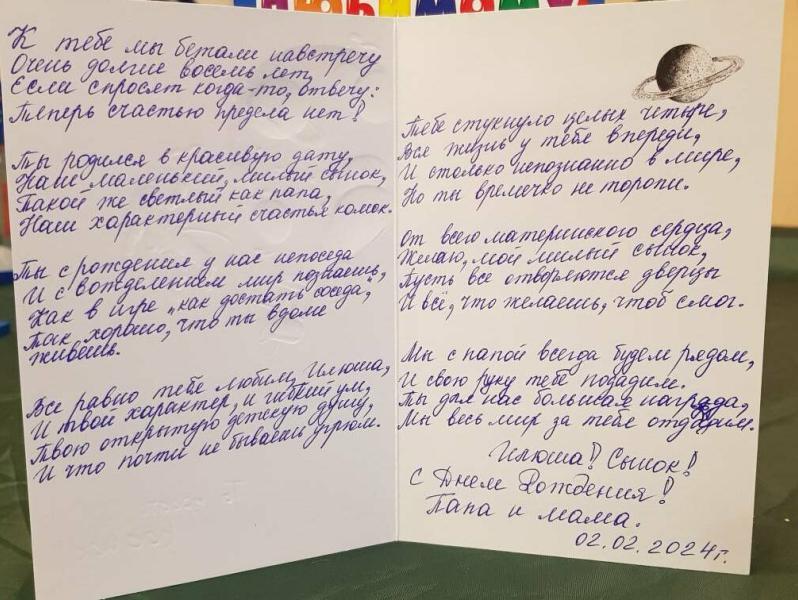 К тебе мы бежали навстречу
Очень долгие восемь лет,
Если спросят когда-то, отвечу:
Теперь счастью предела нет!
Ты родился в красивую дату,
Наш маленький, милый сынок,
Такой же светлый как папа,
Наш характерный счастья комок.
Ты с рождения у нас непоседа
И с вожделением мир познаешь,
Как в игре "как достать соседа",
Так хорошо, что ты вдоме
живёшь.
Все равно тебе любим, Илюша,
И твой характер, и гибкий ум,
Твою открытую детскую душу,
И что почти не бываешь угрюм.
Тебе стукнуло целых четыре,
Вся жизнь у тебе впереди,
И столько непознанно в мире,
Но ты времечко не торопи.
От всего материнского сердца,
Желаю, мой милый сынок,
Пусть все отворяются дверцы
И всё, что желаешь, чтоб смог.
Мы с папой всегда будем рядом,
И свою руку тебе подадим.
Ты для нас большая награда,
Мы весь мир за тебе отдадим.
Илюша! Сынок!
С Днем Рождения!
Папа и мама.
02.02.2024г.